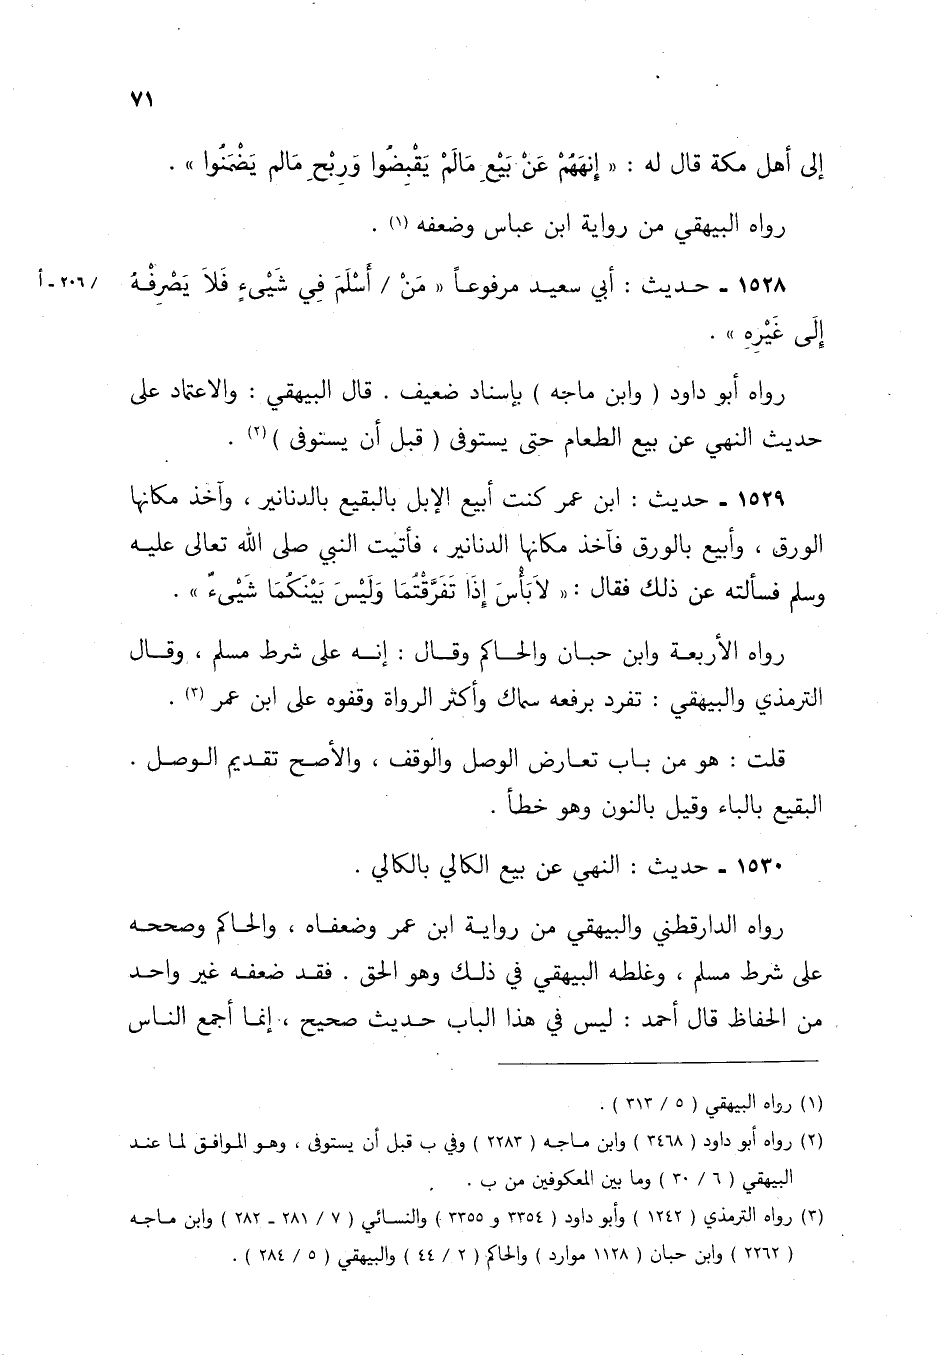 ٧١
إلى أهل مكة قال له : « إِنهَهُمْ عَنْ بَيْعِ مَالَمْ يَقْبِضُوا وَرِبْحِ مَالم يَضْمَنُوا » .
رواه البيهقي من رواية ابن عباس وضعفه (١) .
١٥٢٨ ـ حديث : أبي سعيد مرفوعاً « مَنْ / أَسْلَمَ فِي شَيْىءٍ فَلاَ يَصْرِفْهُ / ٢٠٦ ـ أ
إِلَى غَيْرِهِ » .
رواه أبو داود ( وابن ماجه ) بإسناد ضعيف . قال البيهقي : والاعتماد على
حديث النهي عن بيع الطعام حتى يستوفى ( قبل أن يستوفى ) (٢) .
١٥٢٩ ـ حديث : ابن عمر كنت أبيع الإبل بالبقيع بالدنانير ، وآخذ مكانها
الورق ، وأبيع بالورق فآخذ مكانها الدنانير ، فأتيت النبي صلى الله تعالى عليه
وسلم فسألته عن ذلك فقال : « لاَبَأْسَ إِذَا تَفَرَّقْتُمَا وَلَيْسَ بَيْنَكُمَا شَيْىءٌ » .
رواه الأربعة وابن حبان والحاكم وقال : إنه على شرط مسلم ، وقال
الترمذي والبيهقي : تفرد برفعه سماك وأكثر الرواة وقفوه على ابن عمر (٣) .
قلت : هو من باب تعارض الوصل والوقف ، والأصح تقديم الوصل .
البقيع بالباء وقيل بالنون وهو خطأ .
١٥٣٠ ـ حديث : النهي عن بيع الكالي بالكالي .
رواه الدارقطني والبيهقي من رواية ابن عمر وضعفاه ، والحاكم وصححه
على شرط مسلم ، وغلطه البيهقي في ذلك وهو الحق . فقد ضعفه غير واحد
من الحفاظ قال أحمد : ليس في هذا الباب حديث صحيح ، إنما أجمع الناس
(١) رواه البيهقي ( ٥ / ٣١٣ ) .
(٢) رواه أبو داود ( ٣٤٦٨ ) وابن ماجه ( ٢٢٨٣ ) وفي ب قبل أن يستوفى ، وهو الموافق لما عند
البيهقي ( ٦ / ٣٠ ) وما بين المعكوفين من ب .
(٣) رواه الترمذي ( ١٢٤٢ ) وأبو داود ( ٣٣٥٤ و ٣٣٥٥ ) والنسائي ( ٧ / ٢٨١ ـ ٢٨٢ ) وابن ماجه
( ٢٢٦٢ ) وابن حبان ( ١١٢٨ موارد ) والحاكم ( ٢ / ٤٤ ) والبيهقي ( ٥ / ٢٨٤ ) .